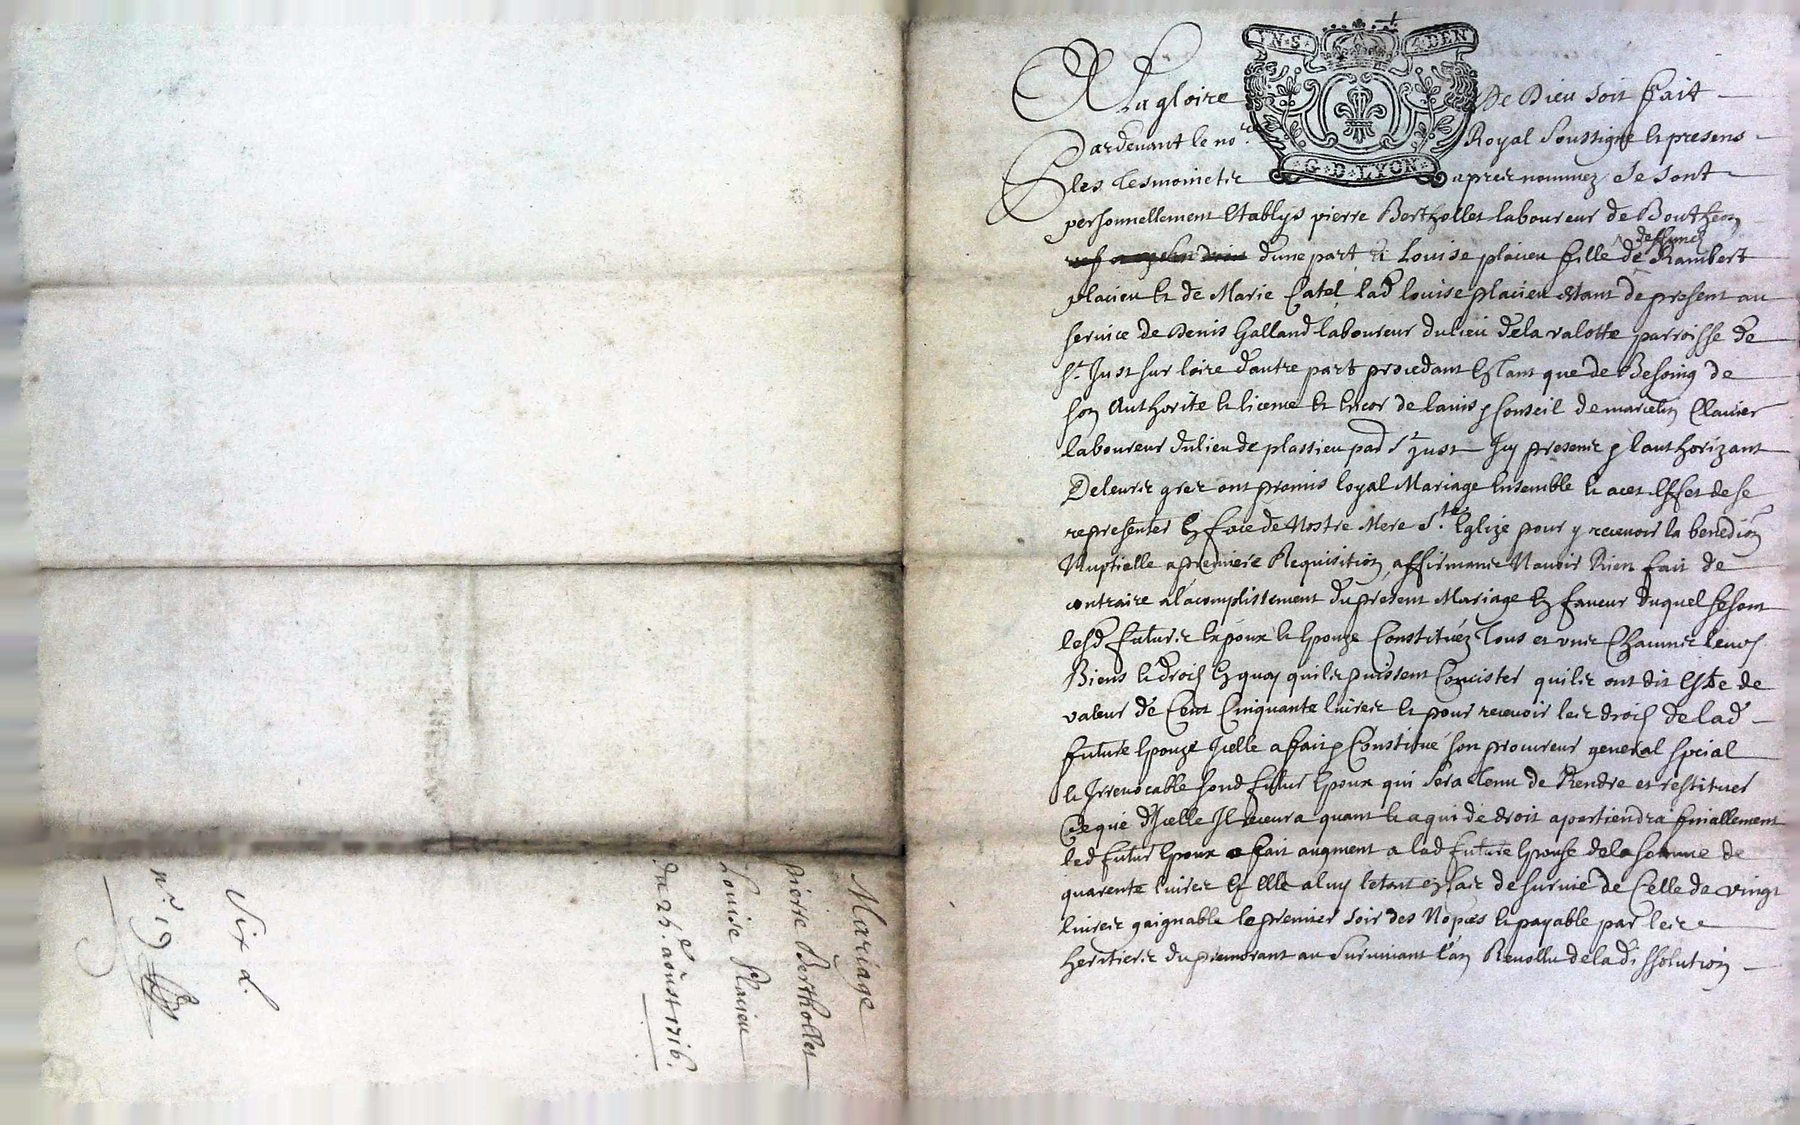 Mariage
pierre Berthollet
Louise placieu
du 25e. aoust 1716.
Six d.
n.° 19
IN·S· 4·DEN
G·D·LYON
A La gloire De Dieu soit fait
Pardevant le no.re Royal Soussigné et presens
les tesmoins apres nommez se sont
personnellement Establys pierre Berthollet laboureur de Boutheon
dune part et Louise placieu fille de deffunct Rambert
placieu et de Marie Catel lad louise placieu estant de present au
service de Denis Galland laboureur du lieu de la valotte parroisse de
St. Just sur loire dautre part procedant Estant que de Besoing de
son Authorité et licence et Encor de lavis & Conseil de marcelin Clavier
laboureur du lieu de plassieu par St Just Icy present & lauthorizant
De leurs grez ont promis loyal Mariage Ensemble et a cet Effet de se
representer En face de Nostre Mere Ste. Eglize pour y recevoir la benedion
Nuptielle a premiere Requisition, affirmant Navoir Rien fait de
contraire a lacomplissement du present Mariage En faveur duquel se sont
lesd futurs Epoux et Epouze Constituéz Tous et uns Chacuns leurs
Biens et droits En quoy quils puissent Concister quils ont dit Estre de
valeur de Cent Cinquante livres et pour recevoir les droits de lad
future Epouze Icelle a fait & Constitué son procureur general special
et Irrevocable sond futur Epoux qui sera tenu de Rendre et restituer
Ce que d'Icelle Il recevra quant et a qui de droit apartiendra finallement
led futur Epoux a fait augment a lad future Epouse de la somme de
quarente livres Et Elle a luy letant En cas de survie de Celle de vingt
livres gaignable le premier soir des Nopces et payable par les
heritiers du premorant au survivant l'an Revollu de la dissolution